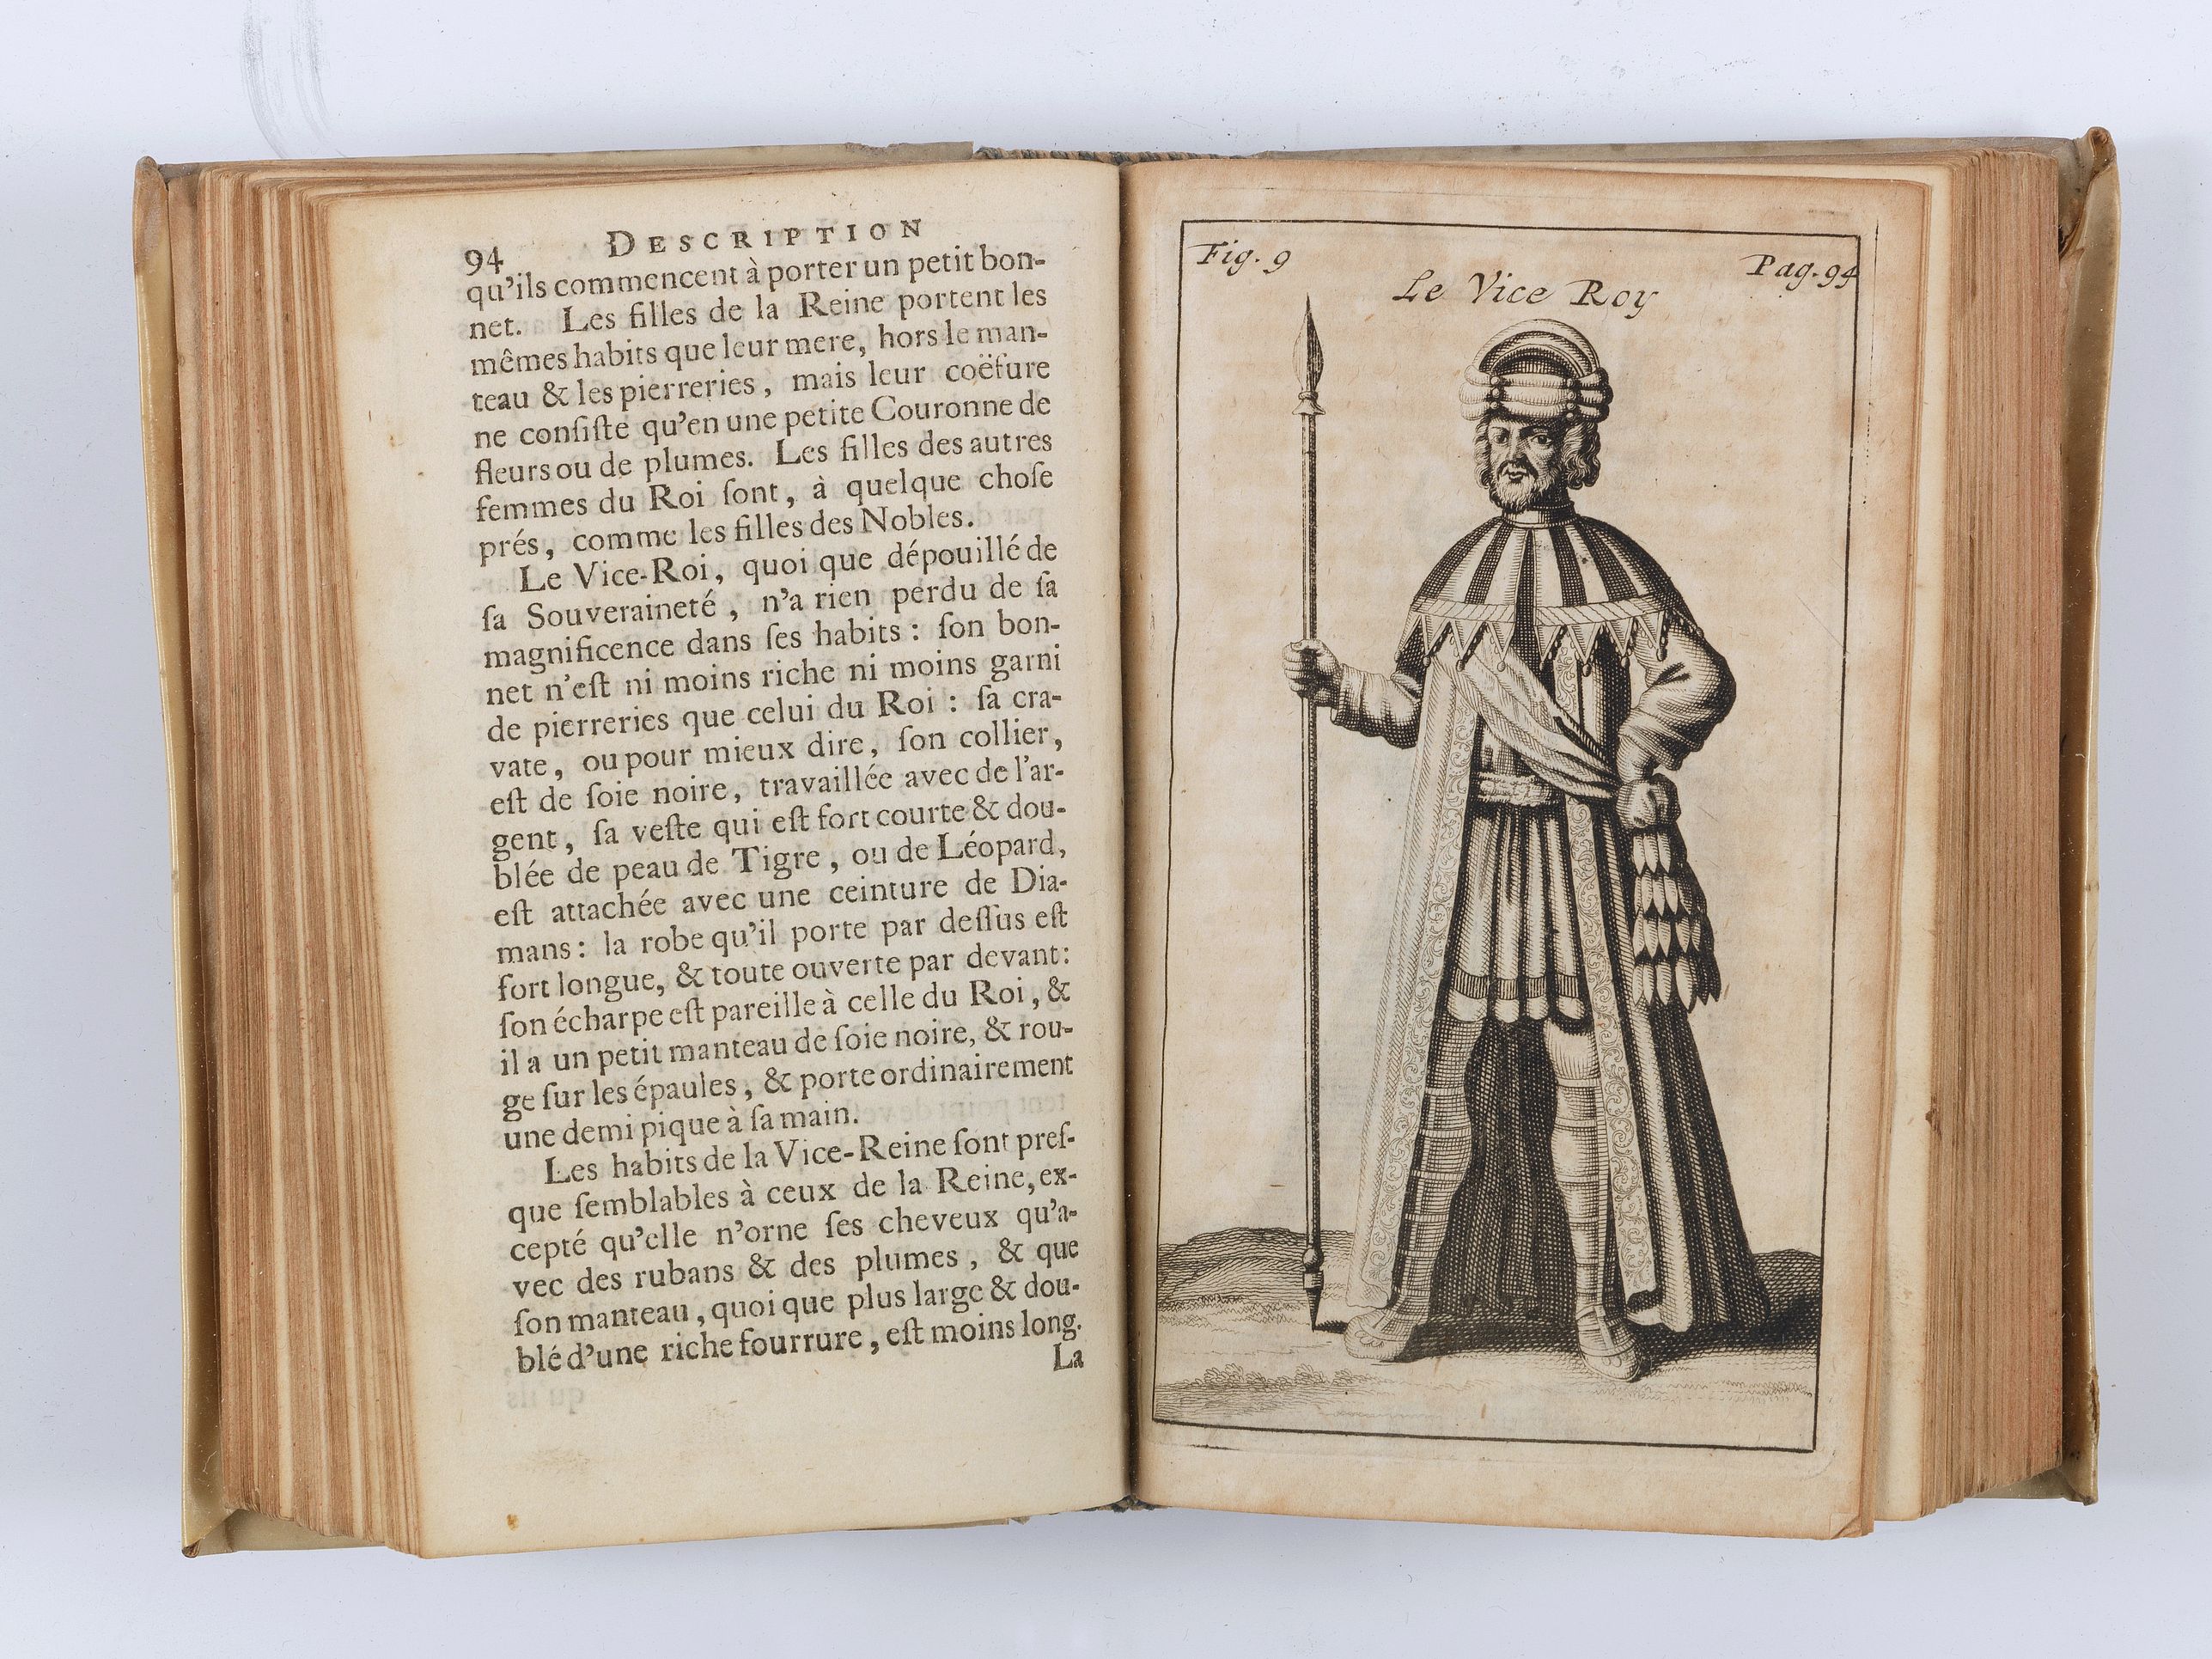 94 DESCRIPTION
qu'ils commencent à porter un petit bon-
net. Les filles de la Reine portent les
mêmes habits que leur mere, hors le man-
teau & les pierreries, mais leur coëfure
ne conſiſte qu'en une petite Couronne de
fleurs ou de plumes. Les filles des autres
femmes du Roi ſont, à quelque choſe
prés, comme les filles des Nobles.
Le Vice-Roi, quoi que dépouillé de
ſa Souveraineté, n'a rien perdu de ſa
magnificence dans ſes habits: ſon bon-
net n'eſt ni moins riche ni moins garni
de pierreries que celui du Roi: ſa cra-
vate, ou pour mieux dire, ſon collier,
eſt de ſoie noire, travaillée avec de l'ar-
gent, ſa veſte qui eſt fort courte & dou-
blée de peau de Tigre, ou de Léopard,
eſt attachée avec une ceinture de Dia-
mans: la robe qu'il porte par deſſus eſt
fort longue, & toute ouverte par devant:
ſon écharpe eſt pareille à celle du Roi, &
il a un petit manteau de ſoie noire, & rou-
ge ſur les épaules, & porte ordinairement
une demi pique à ſa main.
Les habits de la Vice-Reine ſont preſ-
que ſemblables à ceux de la Reine, ex-
cepté qu'elle n'orne ſes cheveux qu'a-
vec des rubans & des plumes, & que
ſon manteau, quoi que plus large & dou-
blé d'une riche fourrure, eſt moins long.
La
Fig. 9
Pag. 94
Le Vice Roy